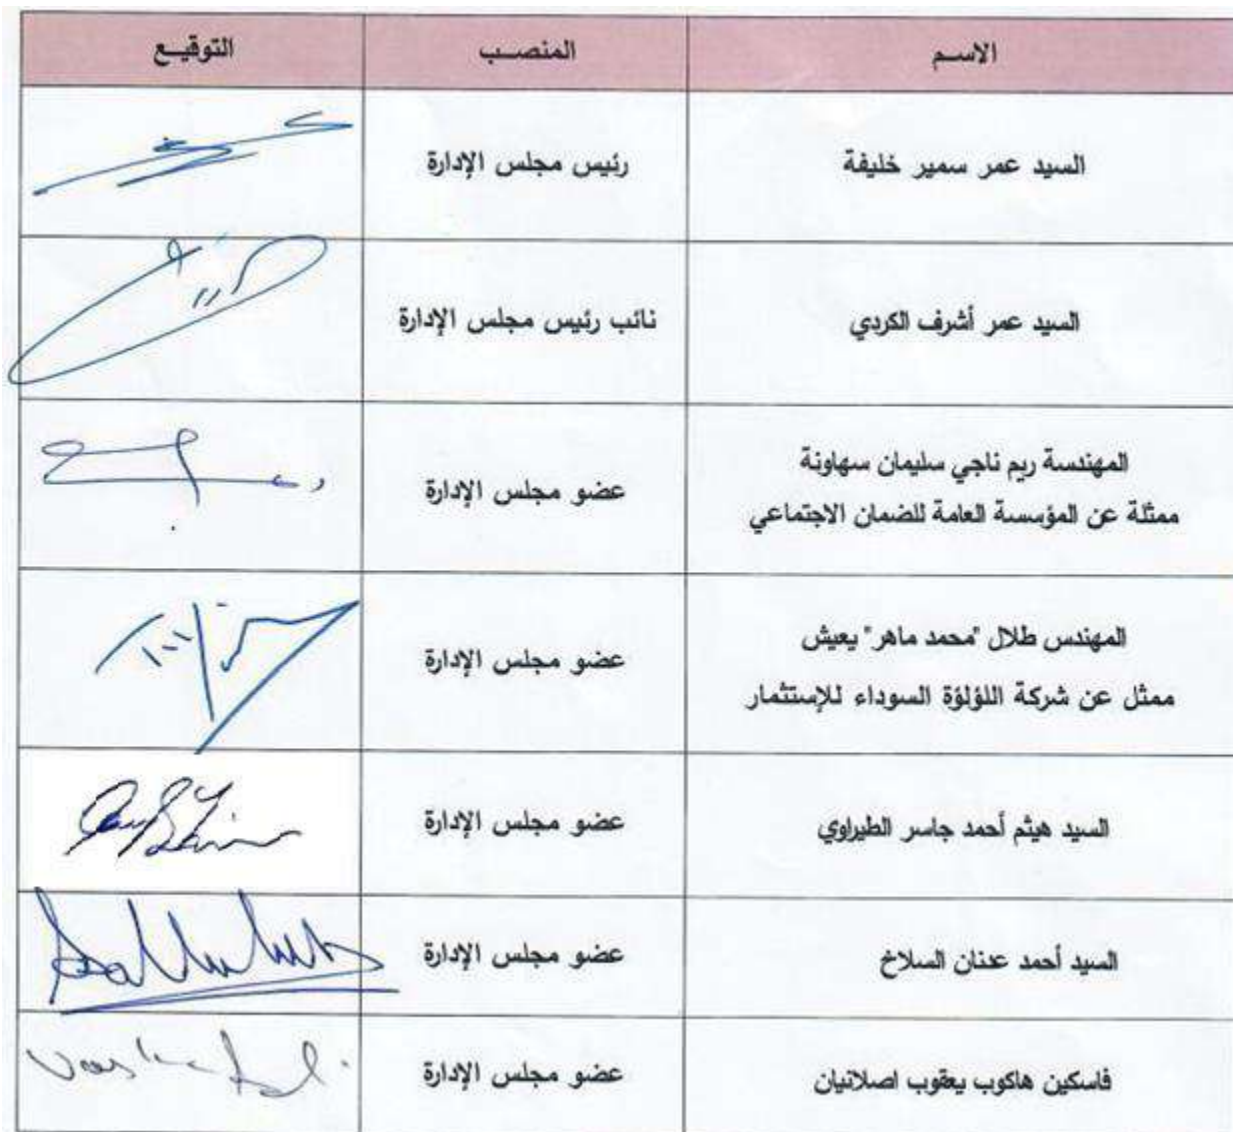 الاسـم المنصـب التوقيـع
السيد عمر سمير خليفة رئيس مجلس الإدارة
السيد عمر أشرف الكردي نائب رئيس مجلس الإدارة
المهندسة ريم ناجي سليمان سهاونة
ممثلة عن المؤسسة العامة للضمان الاجتماعي
عضو مجلس الإدارة
المهندس طلال "محمد ماهر" يعيش
ممثل عن شركة اللؤلؤة السوداء للإستثمار
عضو مجلس الإدارة
السيد هيثم أحمد جاسر الطيراوي عضو مجلس الإدارة
السيد أحمد عدنان السلاخ عضو مجلس الإدارة
فاسكين هاكوب يعقوب اصلانيان عضو مجلس الإدارة